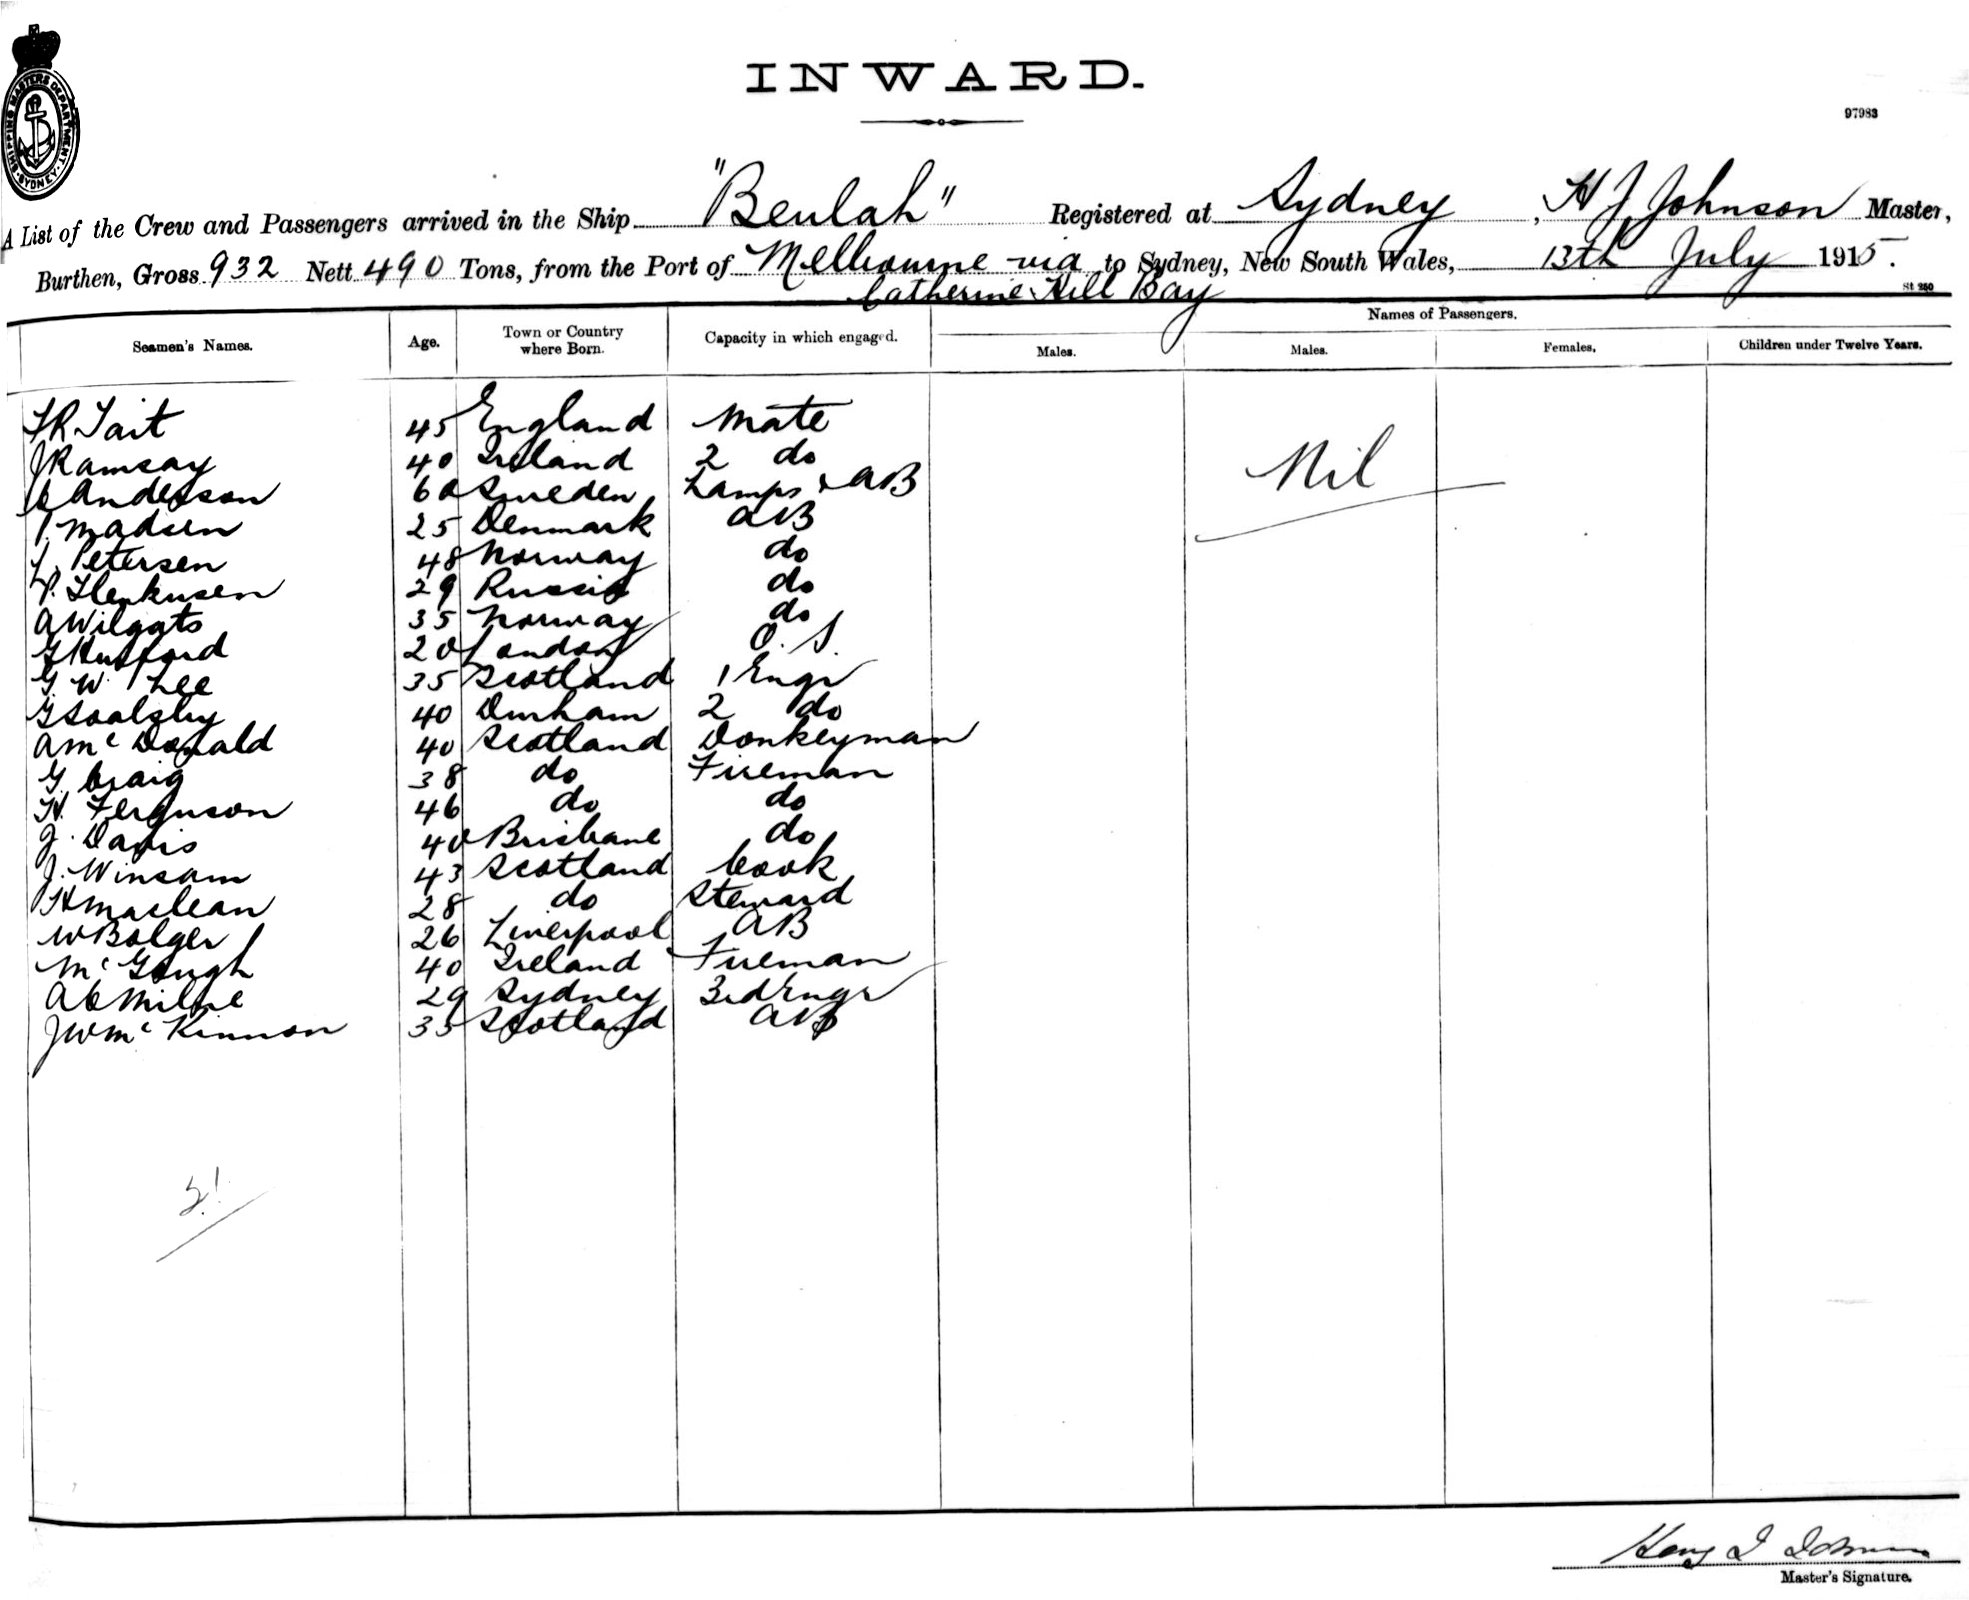 INWARD.
SHIPPING MASTERS DEPARTMENT. SYDNEY.
97983
A List of the Crew and Passengers arrived in the Ship "Beulah" Registered at Sydney, H J Johnson Master,
Burthen, Gross 932 Nett 490 Tons, from the Port of Melbourne via to Sydney, New South Wales, 13th July 1915.
Catherine Hill Bay
St 250
Seamen's Names. Age. Town or Country where Born. Capacity in which engaged. Names of Passengers.
Males. Males. Females. Children under Twelve Years.
Nil
Tait 45 England Mate
J Ramsay 40 Ireland 2 do
C Anderson 60 Sweden Lamps & AB
P. Madsen 25 Denmark AB
L. Petersen 48 Norway do
P. 29 Russia do
A Wilgats 35 Norway do
20 London O.S.
G. W. Lee 35 Scotland 1 Engr
G Soalsby 40 Durham 2 do
A Mc Donald 40 Scotland Donkeyman
G. Craig 38 do Fireman
H. Ferguson 46 do do
J. Davis 40 Brisbane do
J. Winsam 43 Scotland Cook
H Maclean 28 do Steward
W Bolger 26 Liverpool AB
Mc Gough 40 Ireland Fireman
A C Milne 29 Sydney 3rd Engr
J W Mc Kinnon 35 Scotland AB
Johnson
Master's Signature.